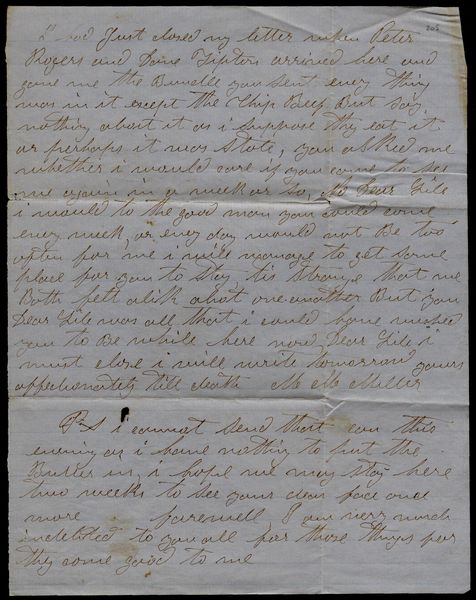 205
I had Just closed my letter when Peter
Rogers and Dave Tipton arrived here and
gave me the Bundle you sent every thing
was in it except the Chip Beef But say
nothing about it as i suppose they eat it
or perhaps it was stole, you asked me
whether i would care if you come to see
me again in a week or so, No Dear
i would to the good man you could come
every week, or every day would not Be too
often for me i will manage to get some
place for you to stay tis strange that we
Both felt alik about one another But you
Dear was all that i could have wished
you to Be while here now Dear i
must close i will write tomorrow yours
affectionately till death M M Miller
PS i cannot send that can this
evning as i have nothing to put the
Butter in, i hope we may stay here
two weeks to see your dear face once
more farewell I am very much
indebted to you all for those things for
they come good to me